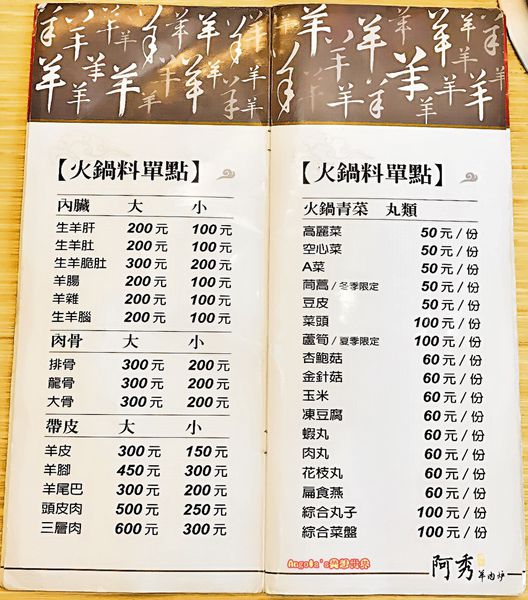 【火鍋料單點】
內臟 大 小
生羊肝 200元 100元
生羊肚 200元 100元
生羊脆肚 300元 200元
羊腸 200元 100元
羊雜 200元 100元
生羊腦 200元 100元
肉骨 大 小
排骨 300元 200元
龍骨 300元 200元
大骨 300元 200元
帶皮 大 小
羊皮 300元 150元
羊腳 450元 300元
羊尾巴 300元 200元
頭皮肉 500元 250元
三層肉 600元 300元
【火鍋料單點】
火鍋青菜 丸類
高麗菜 50元/份
空心菜 50元/份
A菜 50元/份
茼蒿/冬季限定 50元/份
豆皮 50元/份
菜頭 100元/份
蘆筍/夏季限定 100元/份
杏鮑菇 60元/份
金針菇 60元/份
玉米 60元/份
凍豆腐 60元/份
蝦丸 60元/份
肉丸 60元/份
花枝丸 60元/份
扁食燕 60元/份
綜合丸子 100元/份
綜合菜盤 100元/份
阿秀羊肉爐